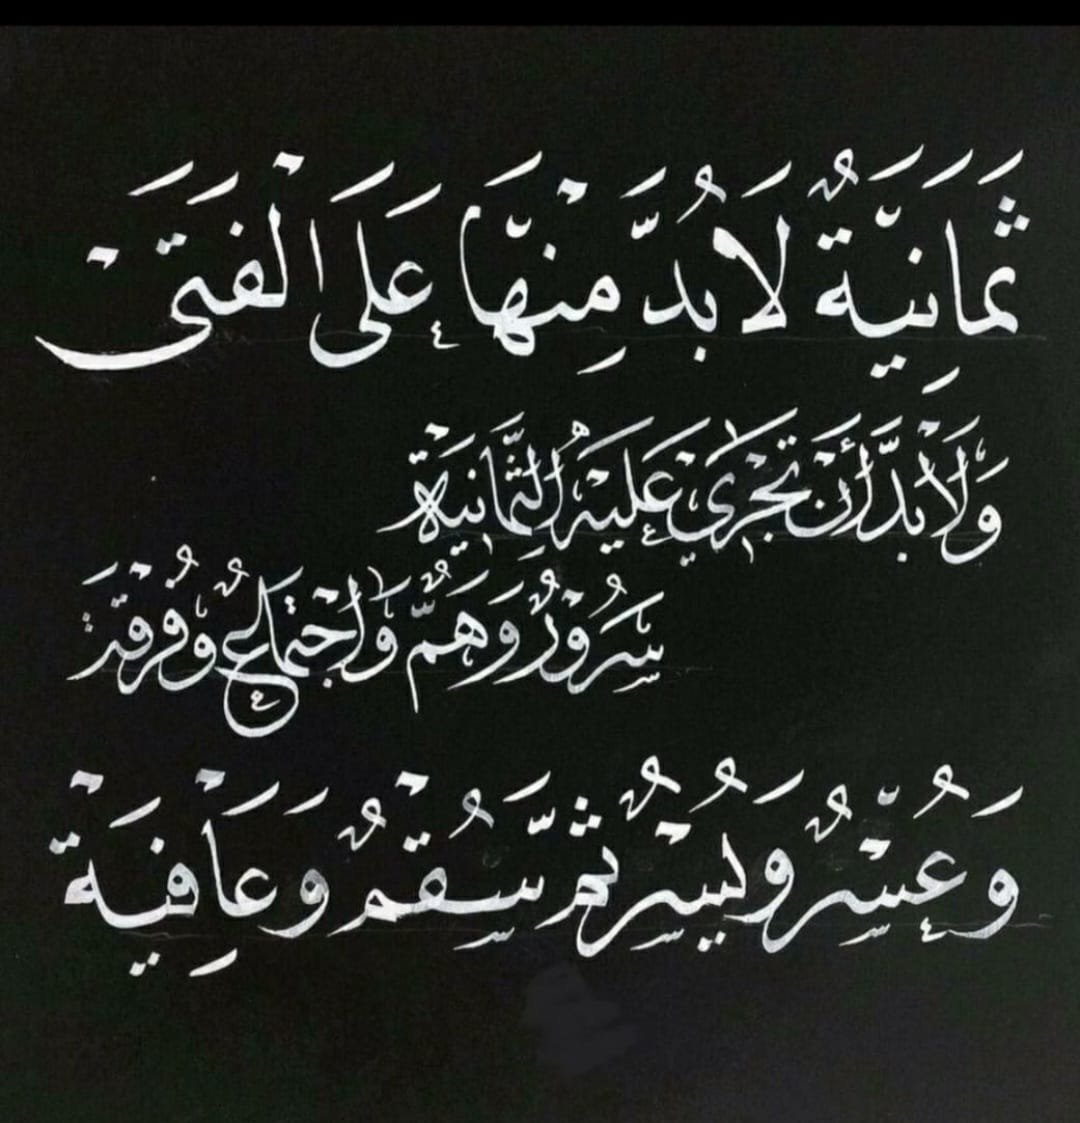 ثَمَانِيَةٌ لَا بُدَّ مِنْهَا عَلَى الْفَتَىْ
وَلَا بُدَّ أَنْ تَجْرِيْ عَلَيْهِ الثَّمَانِيَةْ
سُرُوْرٌ وَهَمٌّ وَاجْتِمَاعٌ وَفُرْقَةٌ
وَعُسْرٌ وَيُسْرٌ ثُمَّ سُقْمٌ وَعَافِيَةْ